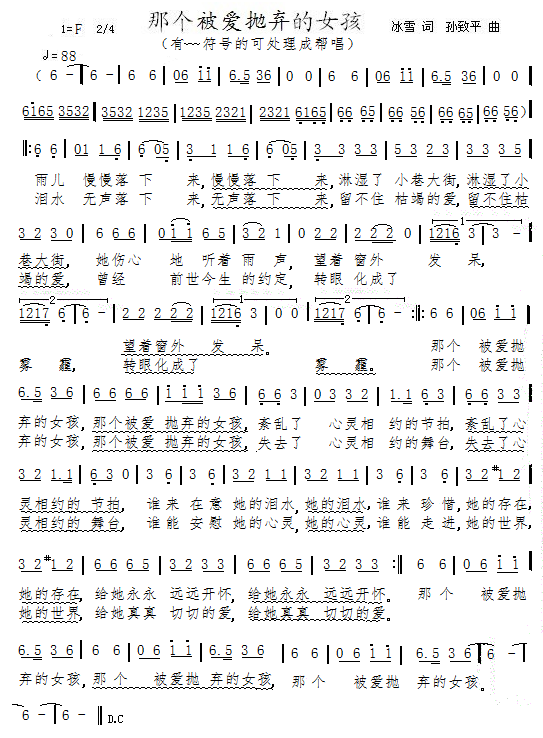 那个被爱抛弃的女孩
1=F 2/4 冰雪 词 孙致平 曲
（有~~符号的可处理成帮唱）
♩=88
( 6 - | 6 - | 6 6 | 06 i i | 6.5 36 | 0 0 | 6 6 | 06 i i | 6.5 36 | 0 0 |
6165 3532 | 3532 1235 | 1235 2321 | 2321 6165 | 66 65 | 66 56 | 66 65 | 66 56 )
‖: 6 6 | 01 1 6 | 6 05 | 3 1 1 6 | 6 05 | 3 3 3 | 5 3 2 3 | 3 3 3 |
雨儿 慢慢落 下 来,慢慢落 下 来,淋湿了 小巷大街,淋湿了小
泪水 无声落 下 来,无声落 下 来,留不住 枯竭的爱,留不住枯
3 2 3 0 | 6 6 6 | 0 i i | 3 2 1 | 2 2 | 2 2 2 2 | 1216 3 | 3 - |
巷大街, 她伤心 地 听着 雨 声, 望着 窗外 发 呆,
竭的爱, 曾经 前世今生 的约定, 转眼 化成了
1217 6 | 6 - | 2 2 2 2 | 1216 3 | 0 0 | 1217 6 | 6 - :‖: 6 6 | 06 i i |
望着窗外 发 呆。 那个 被爱抛
雾 霾, 转眼化成了 雾 霾。 那个 被爱抛
6.5 3 6 | 6 6 6 | i i i 3 6 | 6 6 3 | 0 3 3 2 | 1.1 6 3 | 6 6 3 |
弃的女孩,那个被爱 抛弃的女孩,紊乱了 心灵相 约的节拍,紊乱了心
弃的女孩,那个被爱 抛弃的女孩,失去了 心灵相 约的舞台,失去了心
3 2 1.1 | 6 3 0 | 3 6 | 3 3 2 1.1 | 3 2 1.1 | 3 6 6 3 | 3 2 #1 2 |
灵相约的 节拍, 谁来 在意 她的泪水,她的泪水,谁来 珍惜,她的存在,
灵相约的 舞台, 谁能 安慰 她的心灵,她的心灵,谁能 走进,她的世界,
3 2 #1 2 | 6 6 6 5 | 3 2 3 6 | 6 6 6 5 | 3 2 3 6 :‖ 6 6 | 06 i i |
她的存在,给她永永 远远开怀,给她永永 远远开怀。 那个 被爱抛
她的世界,给她真真 切切的爱,给她真真 切切的爱。
6.5 3 6 | 6 6 | 06 i i | 6.5 3 6 | 6 6 | 06 i i | 6.5 3 6 | 6 - |
弃的女孩,那个 被爱抛 弃的女孩, 那个 被爱抛 弃的女孩。
6 - | 6 - ‖ D.C